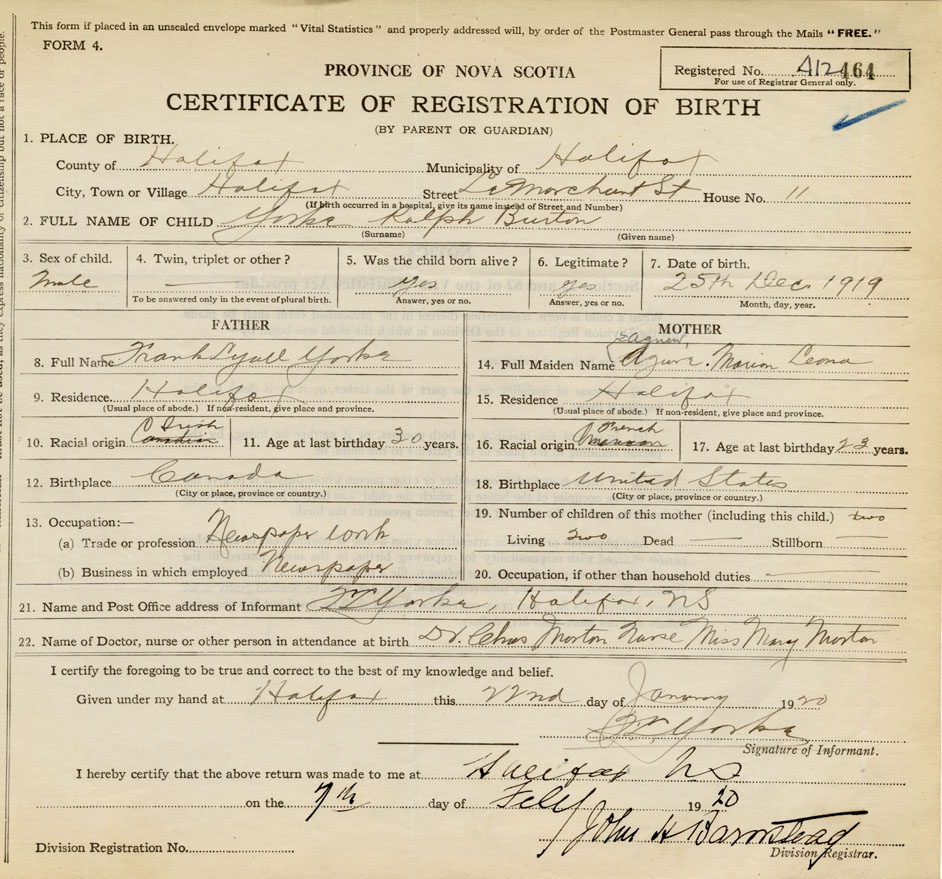 This form if placed in an unsealed envelope marked "Vital Statistics" and properly addressed will, by order of the Postmaster General pass through the Mails "FREE."
FORM 4.
PROVINCE OF NOVA SCOTIA
Registered No. 412 464
For use of Registrar General only.
CERTIFICATE OF REGISTRATION OF BIRTH
(BY PARENT OR GUARDIAN)
1. PLACE OF BIRTH.
County of Halifax Municipality of Halifax
City, Town or Village Halifax Street LeMarchant St House No. 11
(If birth occurred in a hospital, give its name instead of Street and Number)
2. FULL NAME OF CHILD Yorke Ralph Burton
(Surname) (Given name)
3. Sex of child. 4. Twin, triplet or other? 5. Was the child born alive? 6. Legitimate? 7. Date of birth.
Male Yes Yes 25th Dec 1919
To be answered only in the event of plural birth. Answer, yes or no. Answer, yes or no. Month, day, year.
FATHER MOTHER
8. Full Name Frank Lyall Yorke 14. Full Maiden Name Agnew Marion Leona
9. Residence Halifax 15. Residence Halifax
(Usual place of abode.) If non-resident, give place and province. (Usual place of abode.) If non-resident, give place and province.
10. Racial origin Irish Canadian 11. Age at last birthday 30 years. 16. Racial origin French 17. Age at last birthday 23 years.
12. Birthplace Canada 18. Birthplace United States
(City or place, province or country.) (City or place, province or country.)
13. Occupation:— 19. Number of children of this mother (including this child.) two
(a) Trade or profession Newspaper work Living Two Dead — Stillborn —
(b) Business in which employed Newspaper 20. Occupation, if other than household duties —
21. Name and Post Office address of Informant Yorke, Halifax, NS
22. Name of Doctor, nurse or other person in attendance at birth Dr. Chas Morton Nurse Miss Mary Morton
I certify the foregoing to be true and correct to the best of my knowledge and belief.
Given under my hand at Halifax this 22nd day of January 1920
Yorke
Signature of Informant.
I hereby certify that the above return was made to me at Halifax NS
on the 7th day of Feby 1920
John H Barnstead
Division Registrar.
Division Registration No.